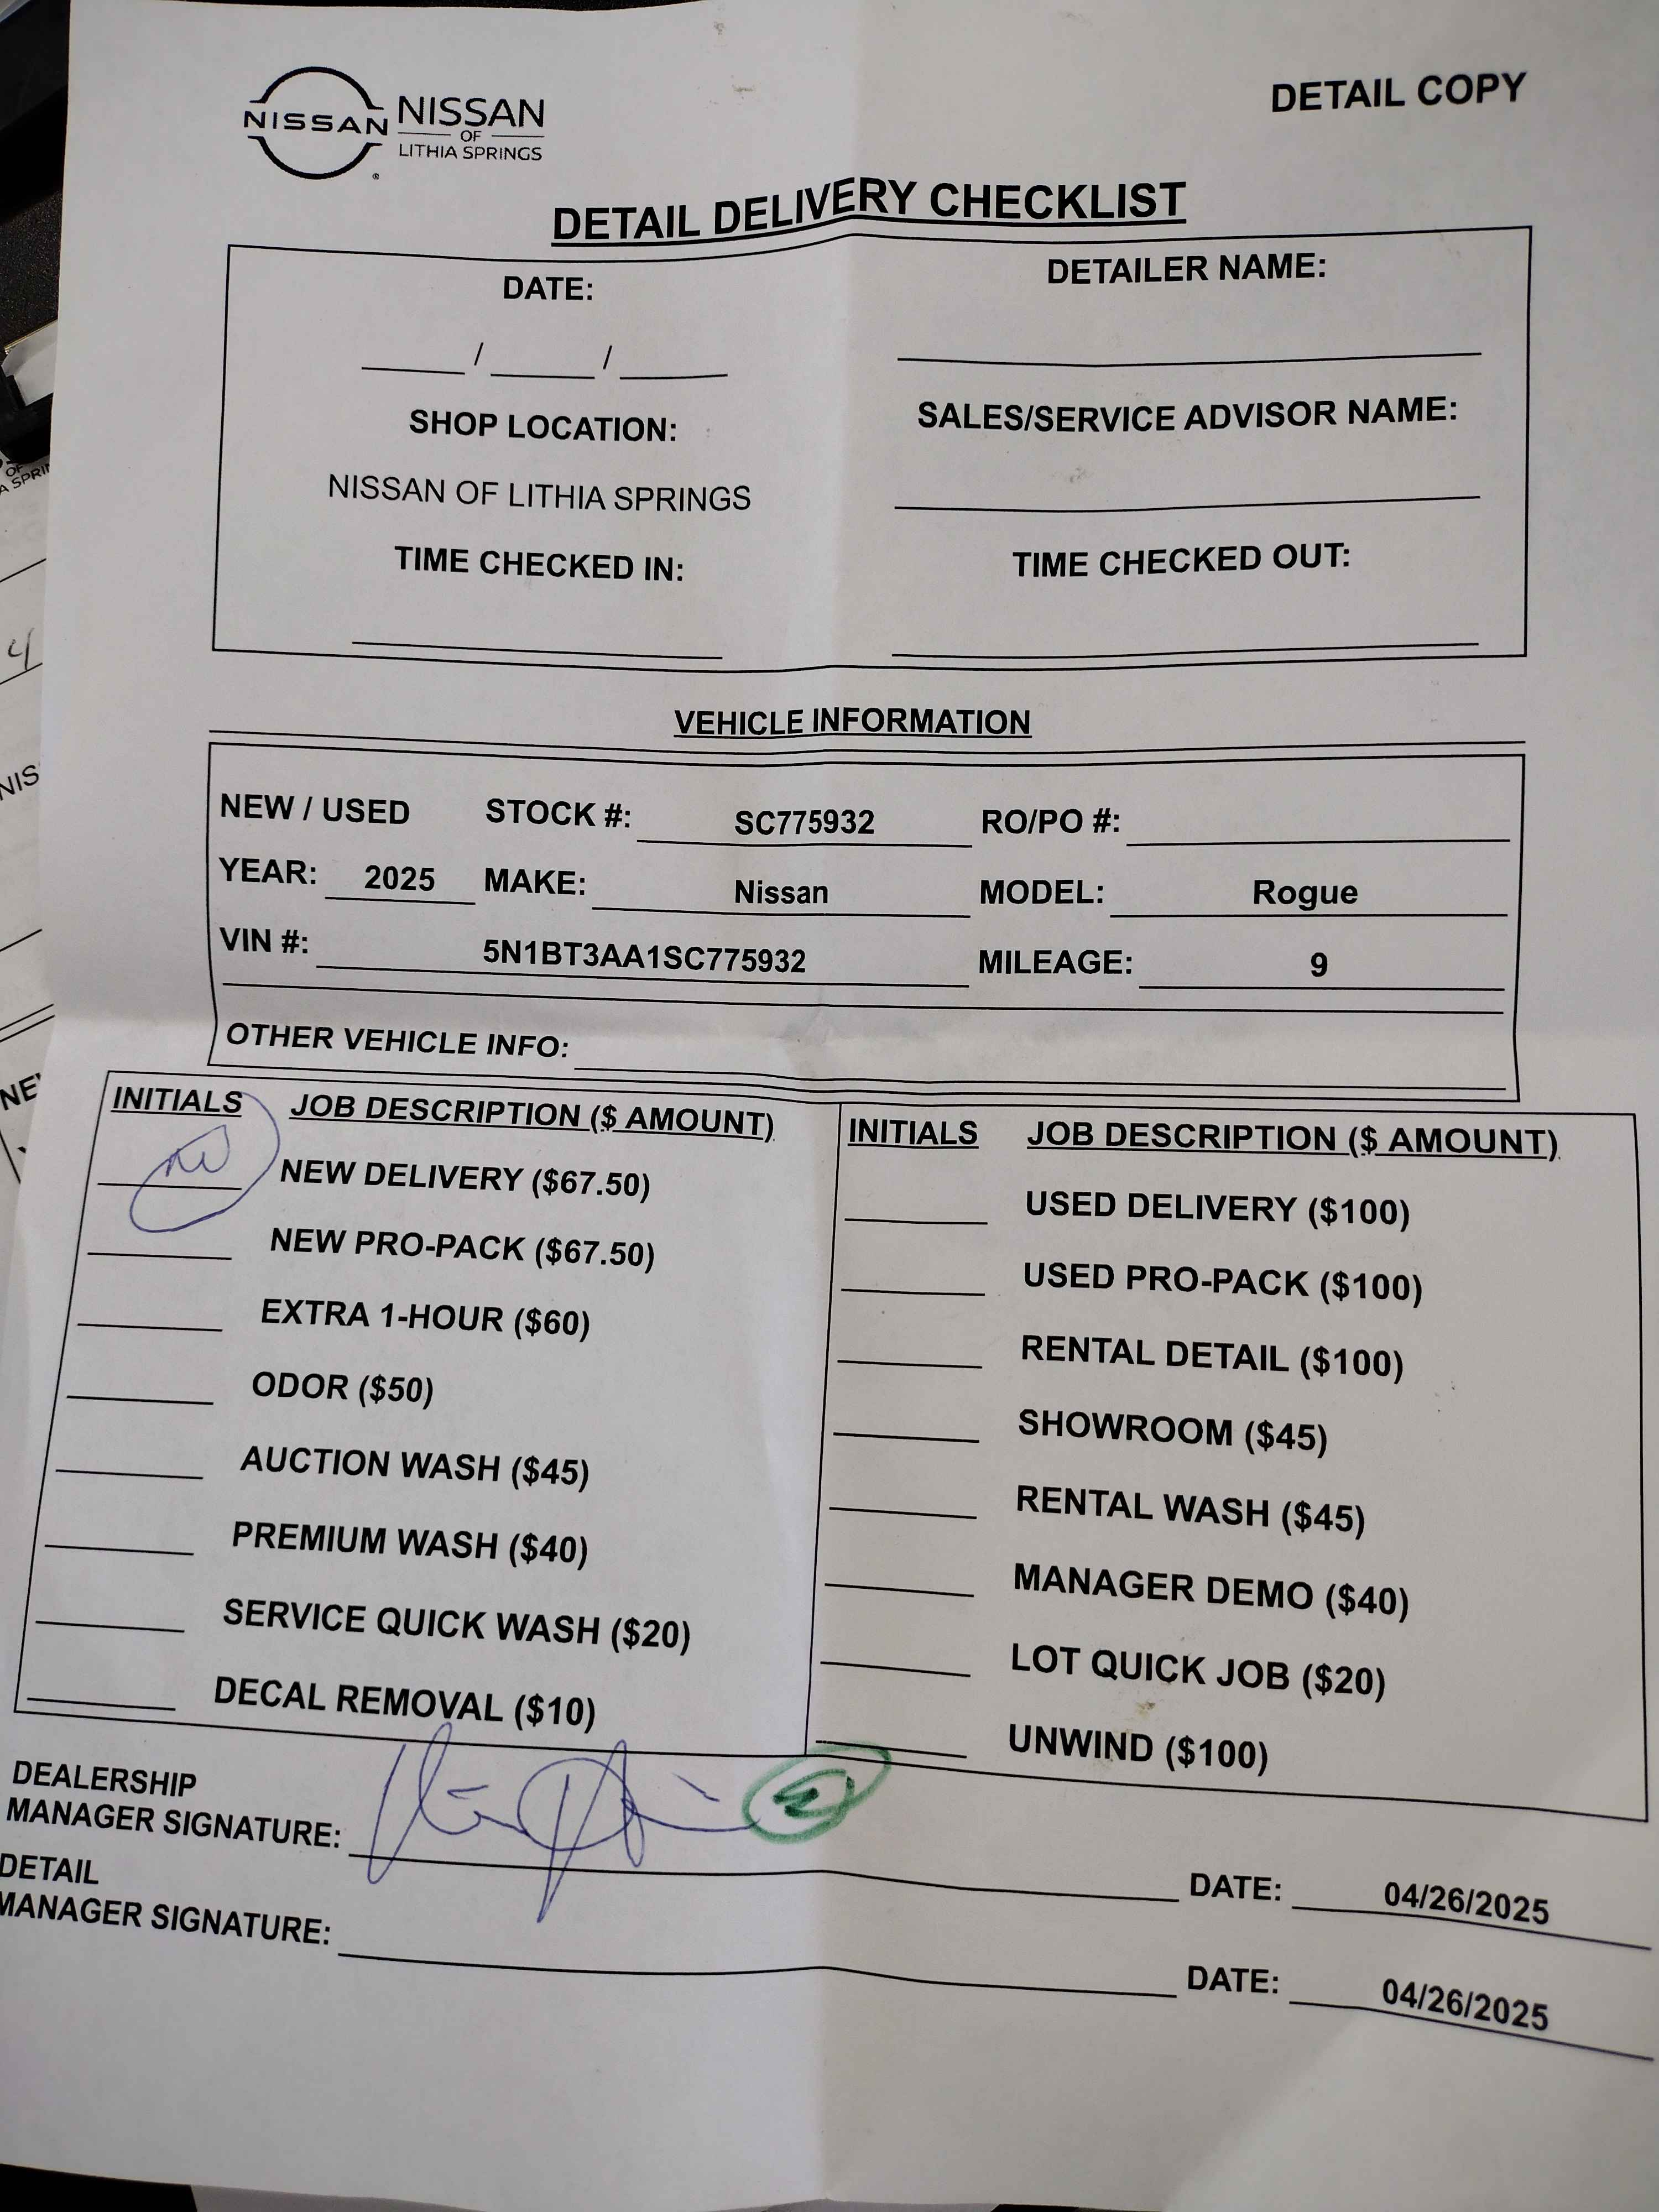 DETAIL COPY
NISSAN
NISSAN
OF
LITHIA SPRINGS
DETAIL DELIVERY CHECKLIST
DATE:
DETAILER NAME:
/ /
SHOP LOCATION:
SALES/SERVICE ADVISOR NAME:
NISSAN OF LITHIA SPRINGS
TIME CHECKED IN:
TIME CHECKED OUT:
VEHICLE INFORMATION
NEW / USED STOCK #: SC775932 RO/PO #:
YEAR: 2025 MAKE: Nissan MODEL: Rogue
VIN #: 5N1BT3AA1SC775932 MILEAGE: 9
OTHER VEHICLE INFO:
INITIALS JOB DESCRIPTION ($ AMOUNT)
NEW DELIVERY ($67.50)
NEW PRO-PACK ($67.50)
EXTRA 1-HOUR ($60)
ODOR ($50)
AUCTION WASH ($45)
PREMIUM WASH ($40)
SERVICE QUICK WASH ($20)
DECAL REMOVAL ($10)
INITIALS JOB DESCRIPTION ($ AMOUNT)
USED DELIVERY ($100)
USED PRO-PACK ($100)
RENTAL DETAIL ($100)
SHOWROOM ($45)
RENTAL WASH ($45)
MANAGER DEMO ($40)
LOT QUICK JOB ($20)
UNWIND ($100)
DEALERSHIP
MANAGER SIGNATURE:
DATE: 04/26/2025
DETAIL
MANAGER SIGNATURE:
DATE: 04/26/2025